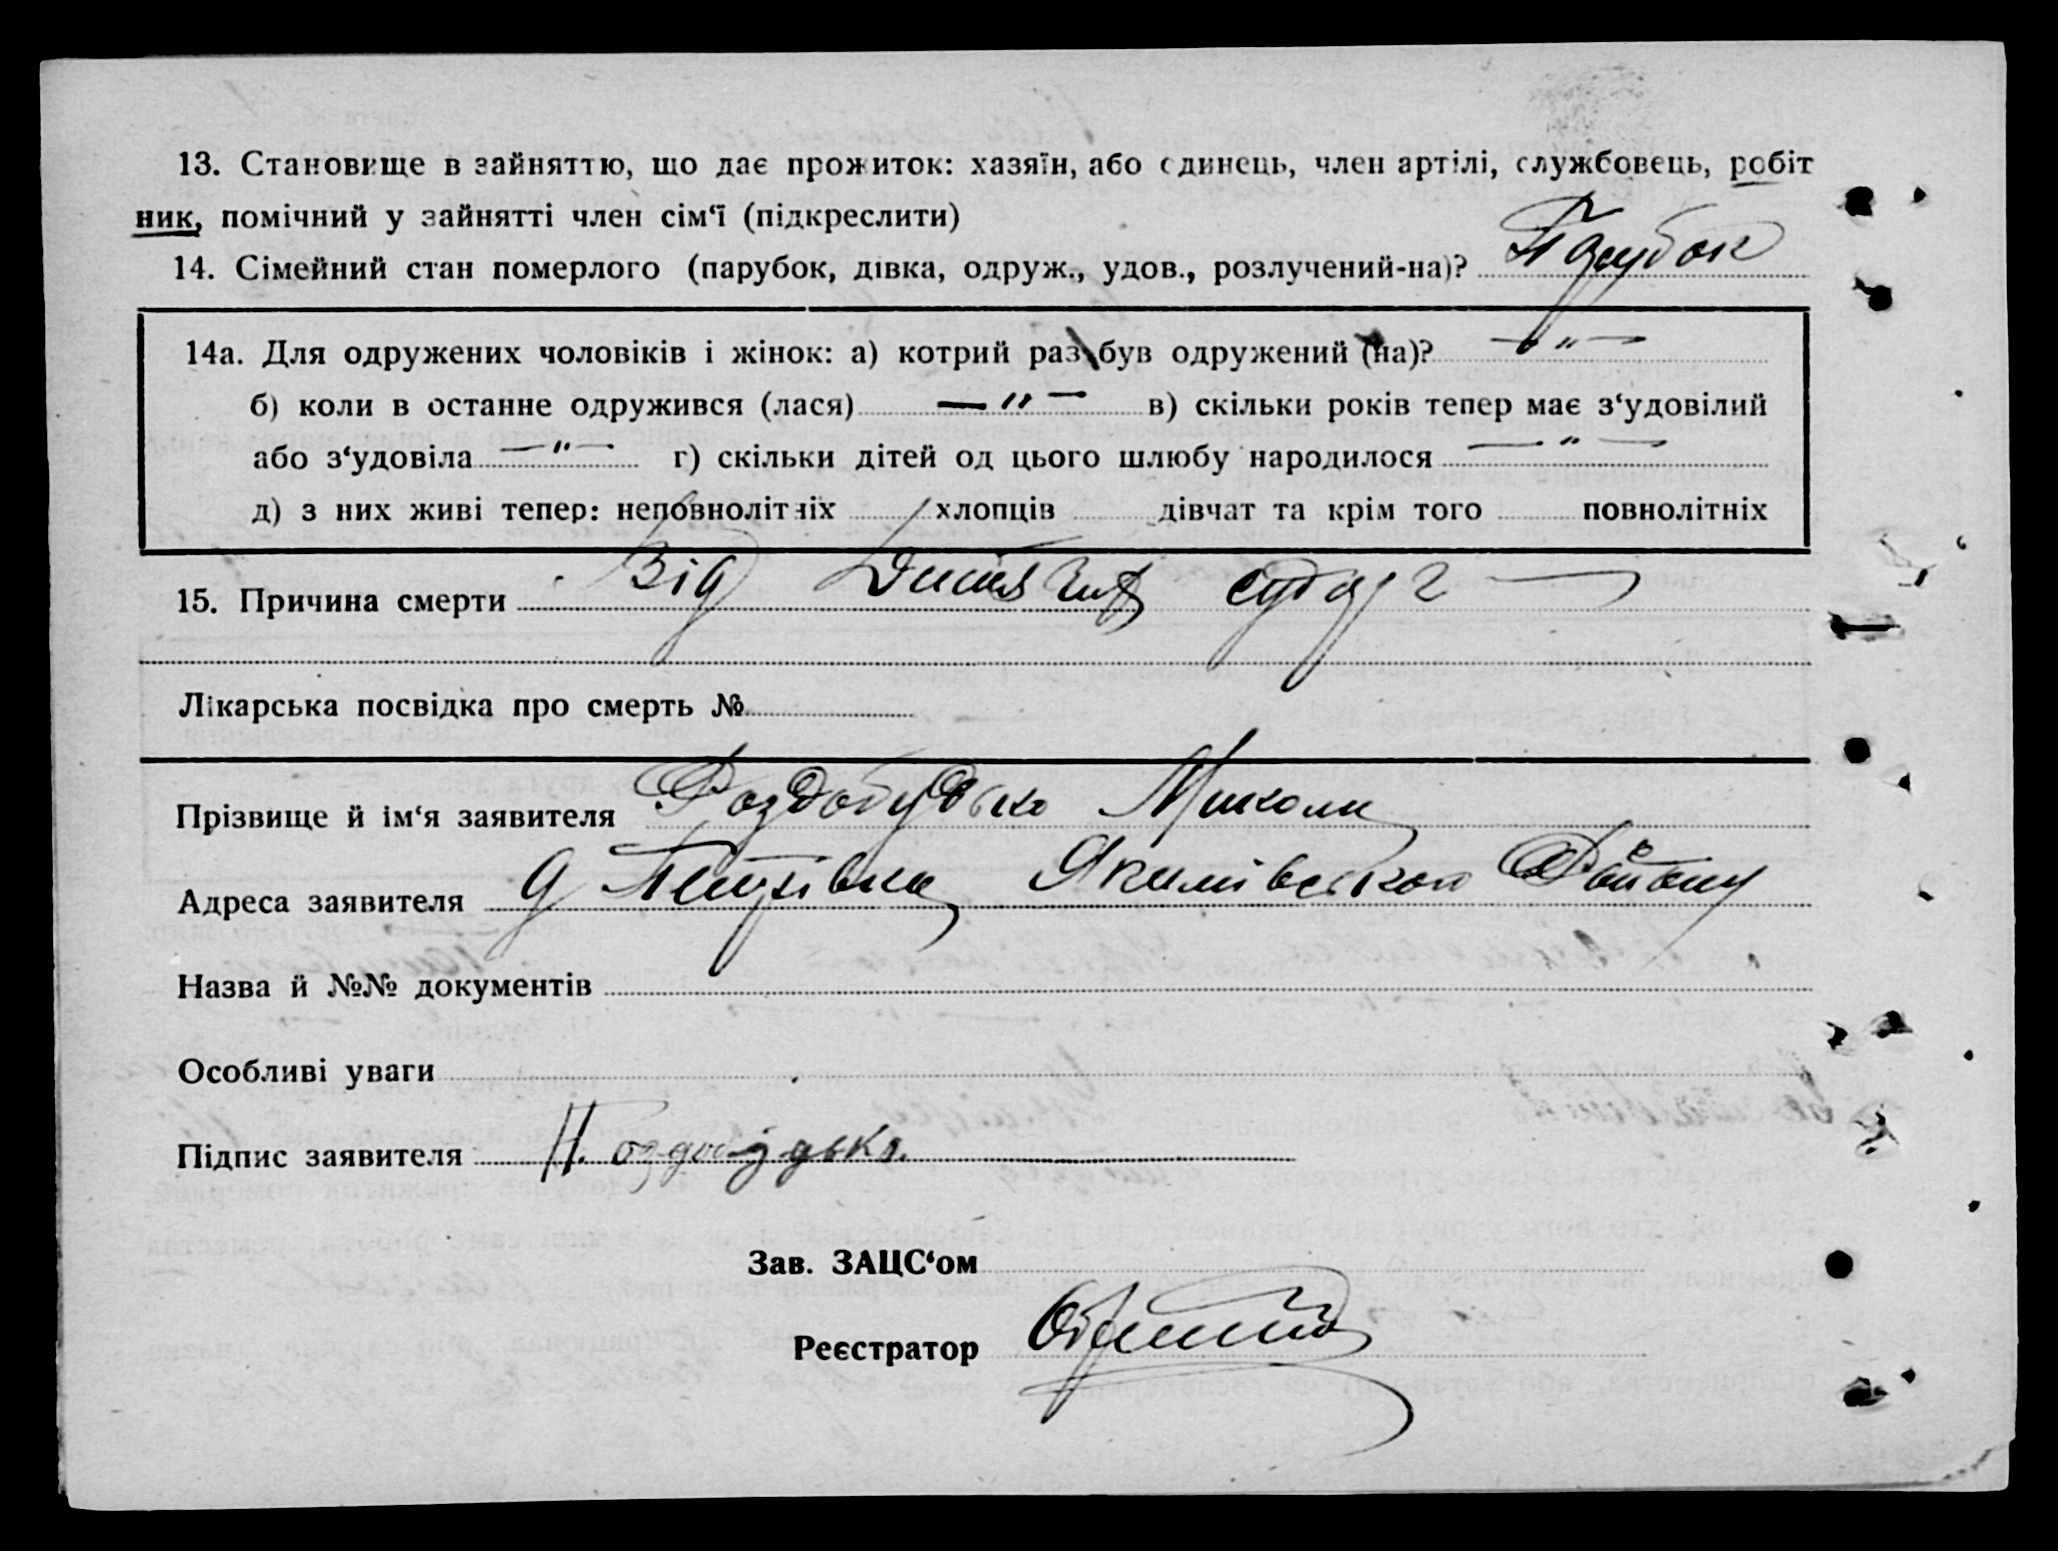 13. Становище в зайняттю, що дає прожиток: хазяїн, або єдинець, член артілі, службовець, робіт
ник, помічний у зайнятті член сім‘ї (підкреслити)
14. Сімейний стан померлого (парубок, дівка, одруж., удов., розлучений-на)? Парубок
14а. Для одружених чоловіків і жінок: а) котрий раз був одружений (на)? — „ —
б) коли в останне одружився (лася) — „ — в) скільки років тепер має з‘удовілий
або з‘удовіла — „ — г) скільки дітей од цього шлюбу народилося — „ —
д) з них живі тепер: неповнолітніх хлопців дівчат та крім того повнолітніх
15. Причина смерти Від
Лікарська посвідка про смерть №
Прізвище й ім‘я заявителя Роздобудько Микола
Адреса заявителя Якимівського Району
Назва й №№ документів
Особливі уваги
Підпис заявителя
Зав. ЗАЦС‘ом
Реєстратор